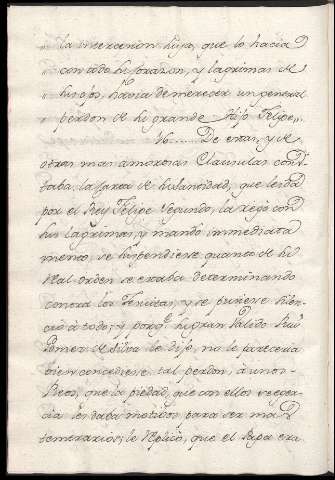 la intercesion hija, que lo hacia D
" con todo su corazon, y lagrimas de
" sus ojos, havia de merecer un general
" perdon de su grande Hijo Felipe,,
16...... De estas, y de
otras mas amorosas Clausulas cons
taba la Carta de su Santidad, que leida
por el Rey Felipe Segundo, la regó con
sus lagrimas, y mandó inmediata
mente, se suspendiese quanto de su
Real orden se estaba determinando
contra los Jesuitas, y se pusiese silen
cio à todo; y porq.e su gran Valido Rui
Gomez de Silva le dijo, no le parecia
bien concediese tal perdon, à unos
Reos, que la piedad, que con ellos se exer
cia les daba motibos para ser mas
temerarios; le replicó, que el Papa era